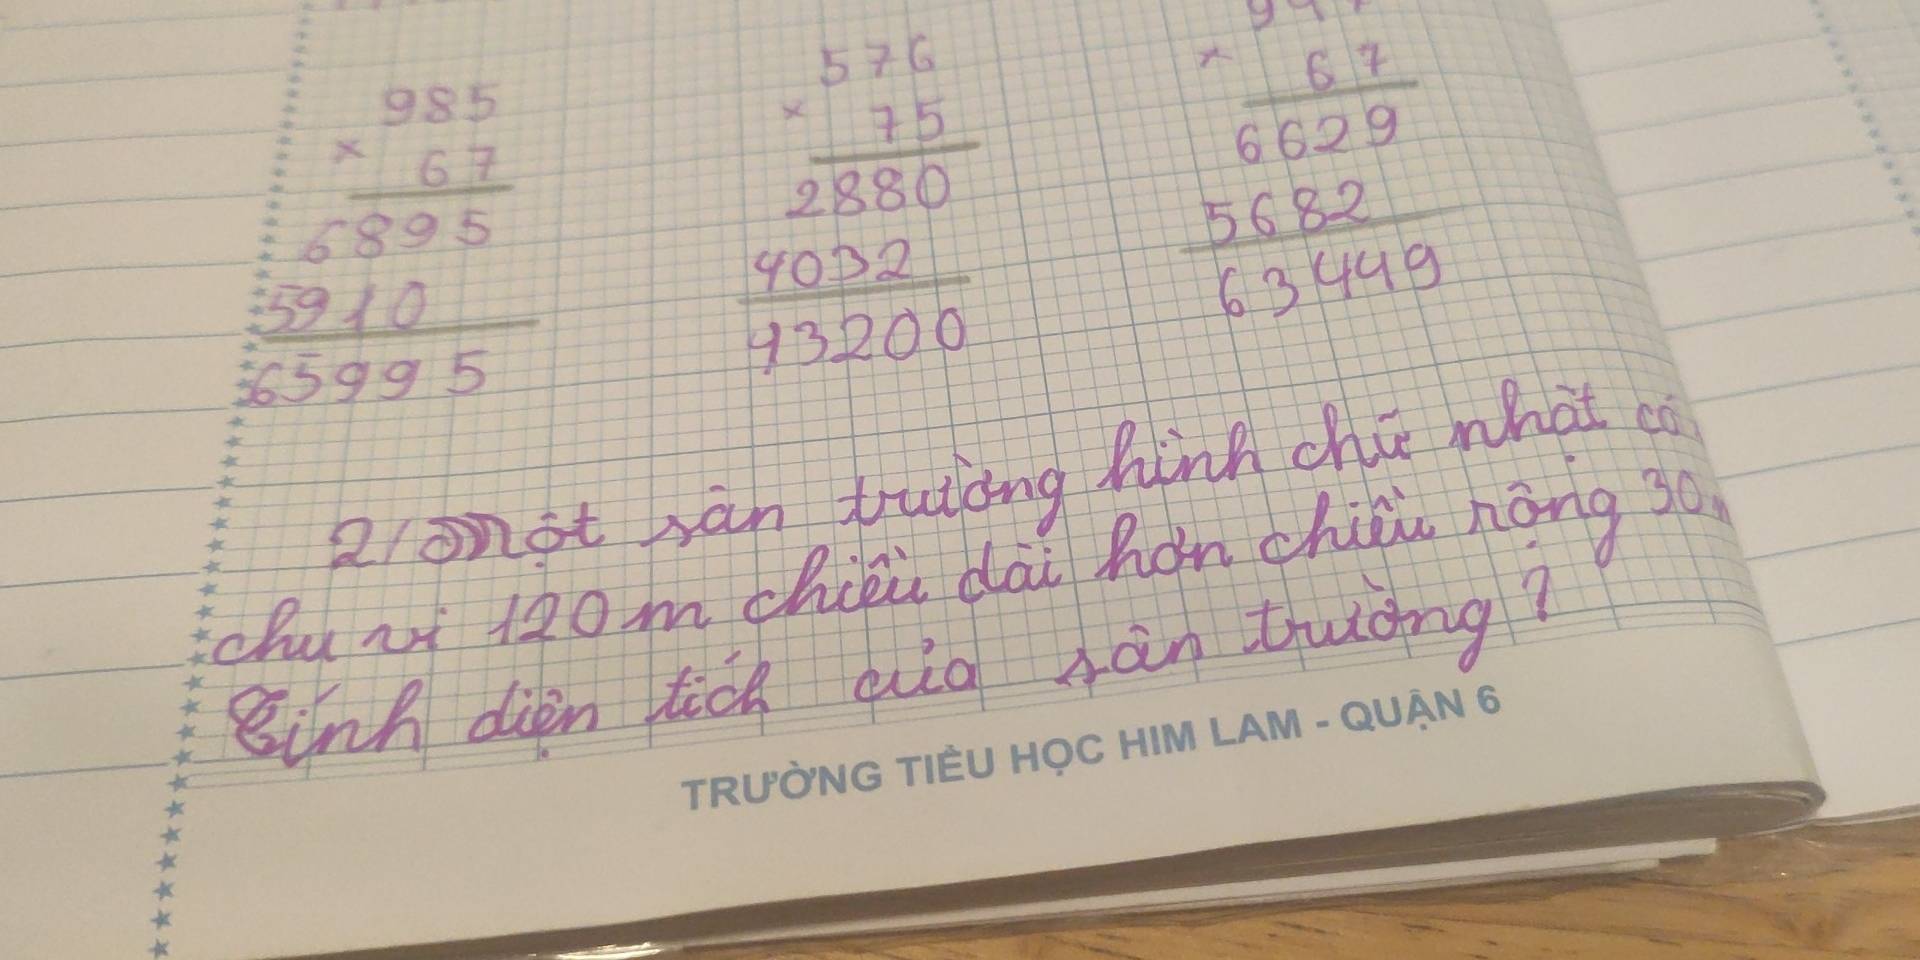 985
× 67
6895
5910
65995
576
× 75
2880
4032
43200
947
× 67
6629
5682
63449
2/ Một sân trường hình chữ nhật có
chu vi 120m chiều dài hơn chiều rộng 30m
Tính diện tích của sân trường?
TRƯỜNG TIỂU HỌC HIM LAM - QUẬN 6